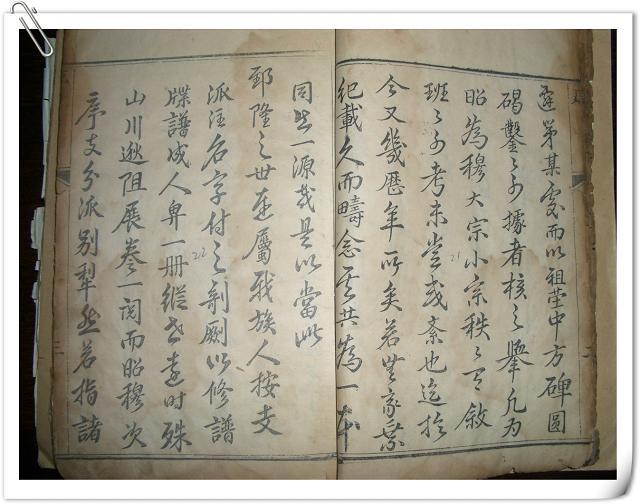 遷第某处而以祖茔中方碑圆
碣鑿鑿可據者核之舉凡为
昭為穆大宗小宗秩秩可敘
班班可考未嘗或紊也迄於
21
今又幾歷年所矣若無家乘
紀載久而疇念其共為一本
同出一源哉是以當此
郅隆之世連屬我族人按支
派注名字付之剞劂以修譜
22
牒譜成人畀一册縱世遠时殊
山川遐阻展卷一阅而昭穆次
序支分派别犁然若指諸